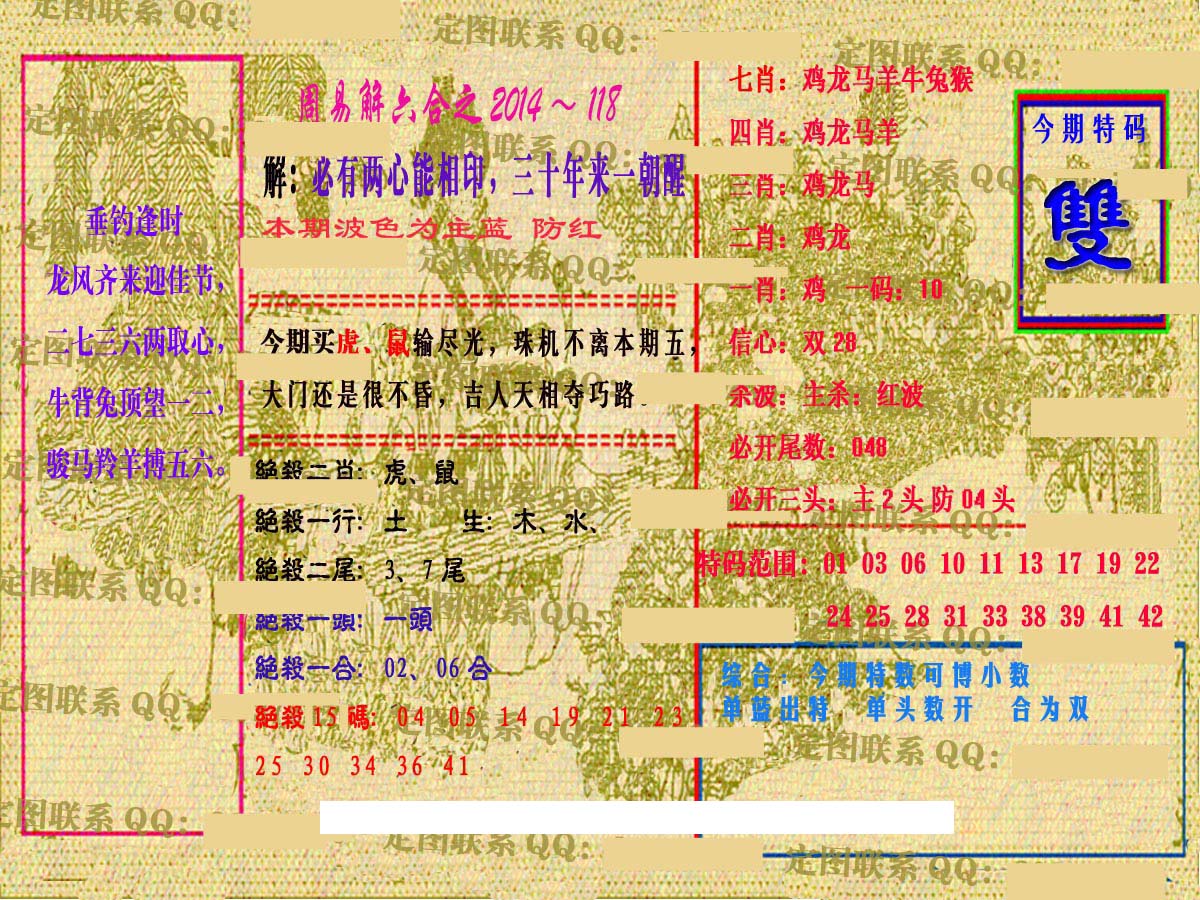 周易解六合之2014～118
解：必有两心能相印，三十年来一朝醒
本期波色为主蓝 防红
垂钓逢时
龙风齐来迎佳节，
二七三六两取心，
牛背兔顶望一二，
骏马羚羊搏五六。
今期买虎、鼠输尽光，珠机不离本期五，
大门还是很不昏，吉人天相夺巧路
絕殺二肖: 虎、鼠
絕殺一行: 土 生: 木、水、
絕殺二尾: 3、7尾
絕殺一頭: 一頭
絕殺一合: 02、06合
絕殺15碼: 04 05 14 19 21 23
25 30 34 36 41
七肖：鸡龙马羊牛兔猴
四肖：鸡龙马羊
三肖：鸡龙马
二肖：鸡龙
一肖：鸡 一码：10
信心：双28
杀波：主杀：红波
必开尾数：048
必开三头：主2头防04头
特码范围：01 03 06 10 11 13 17 19 22
24 25 28 31 33 38 39 41 42
今期特码
雙
综合：今期特数可博小数
单蓝出特 单头数开 合为双
定图联系 QQ：
定图联系 QQ：
定图联系 QQ：
定图联系 QQ：
定图联系 QQ：
定图联系 QQ：
定图联系 QQ：
定图联系 QQ：